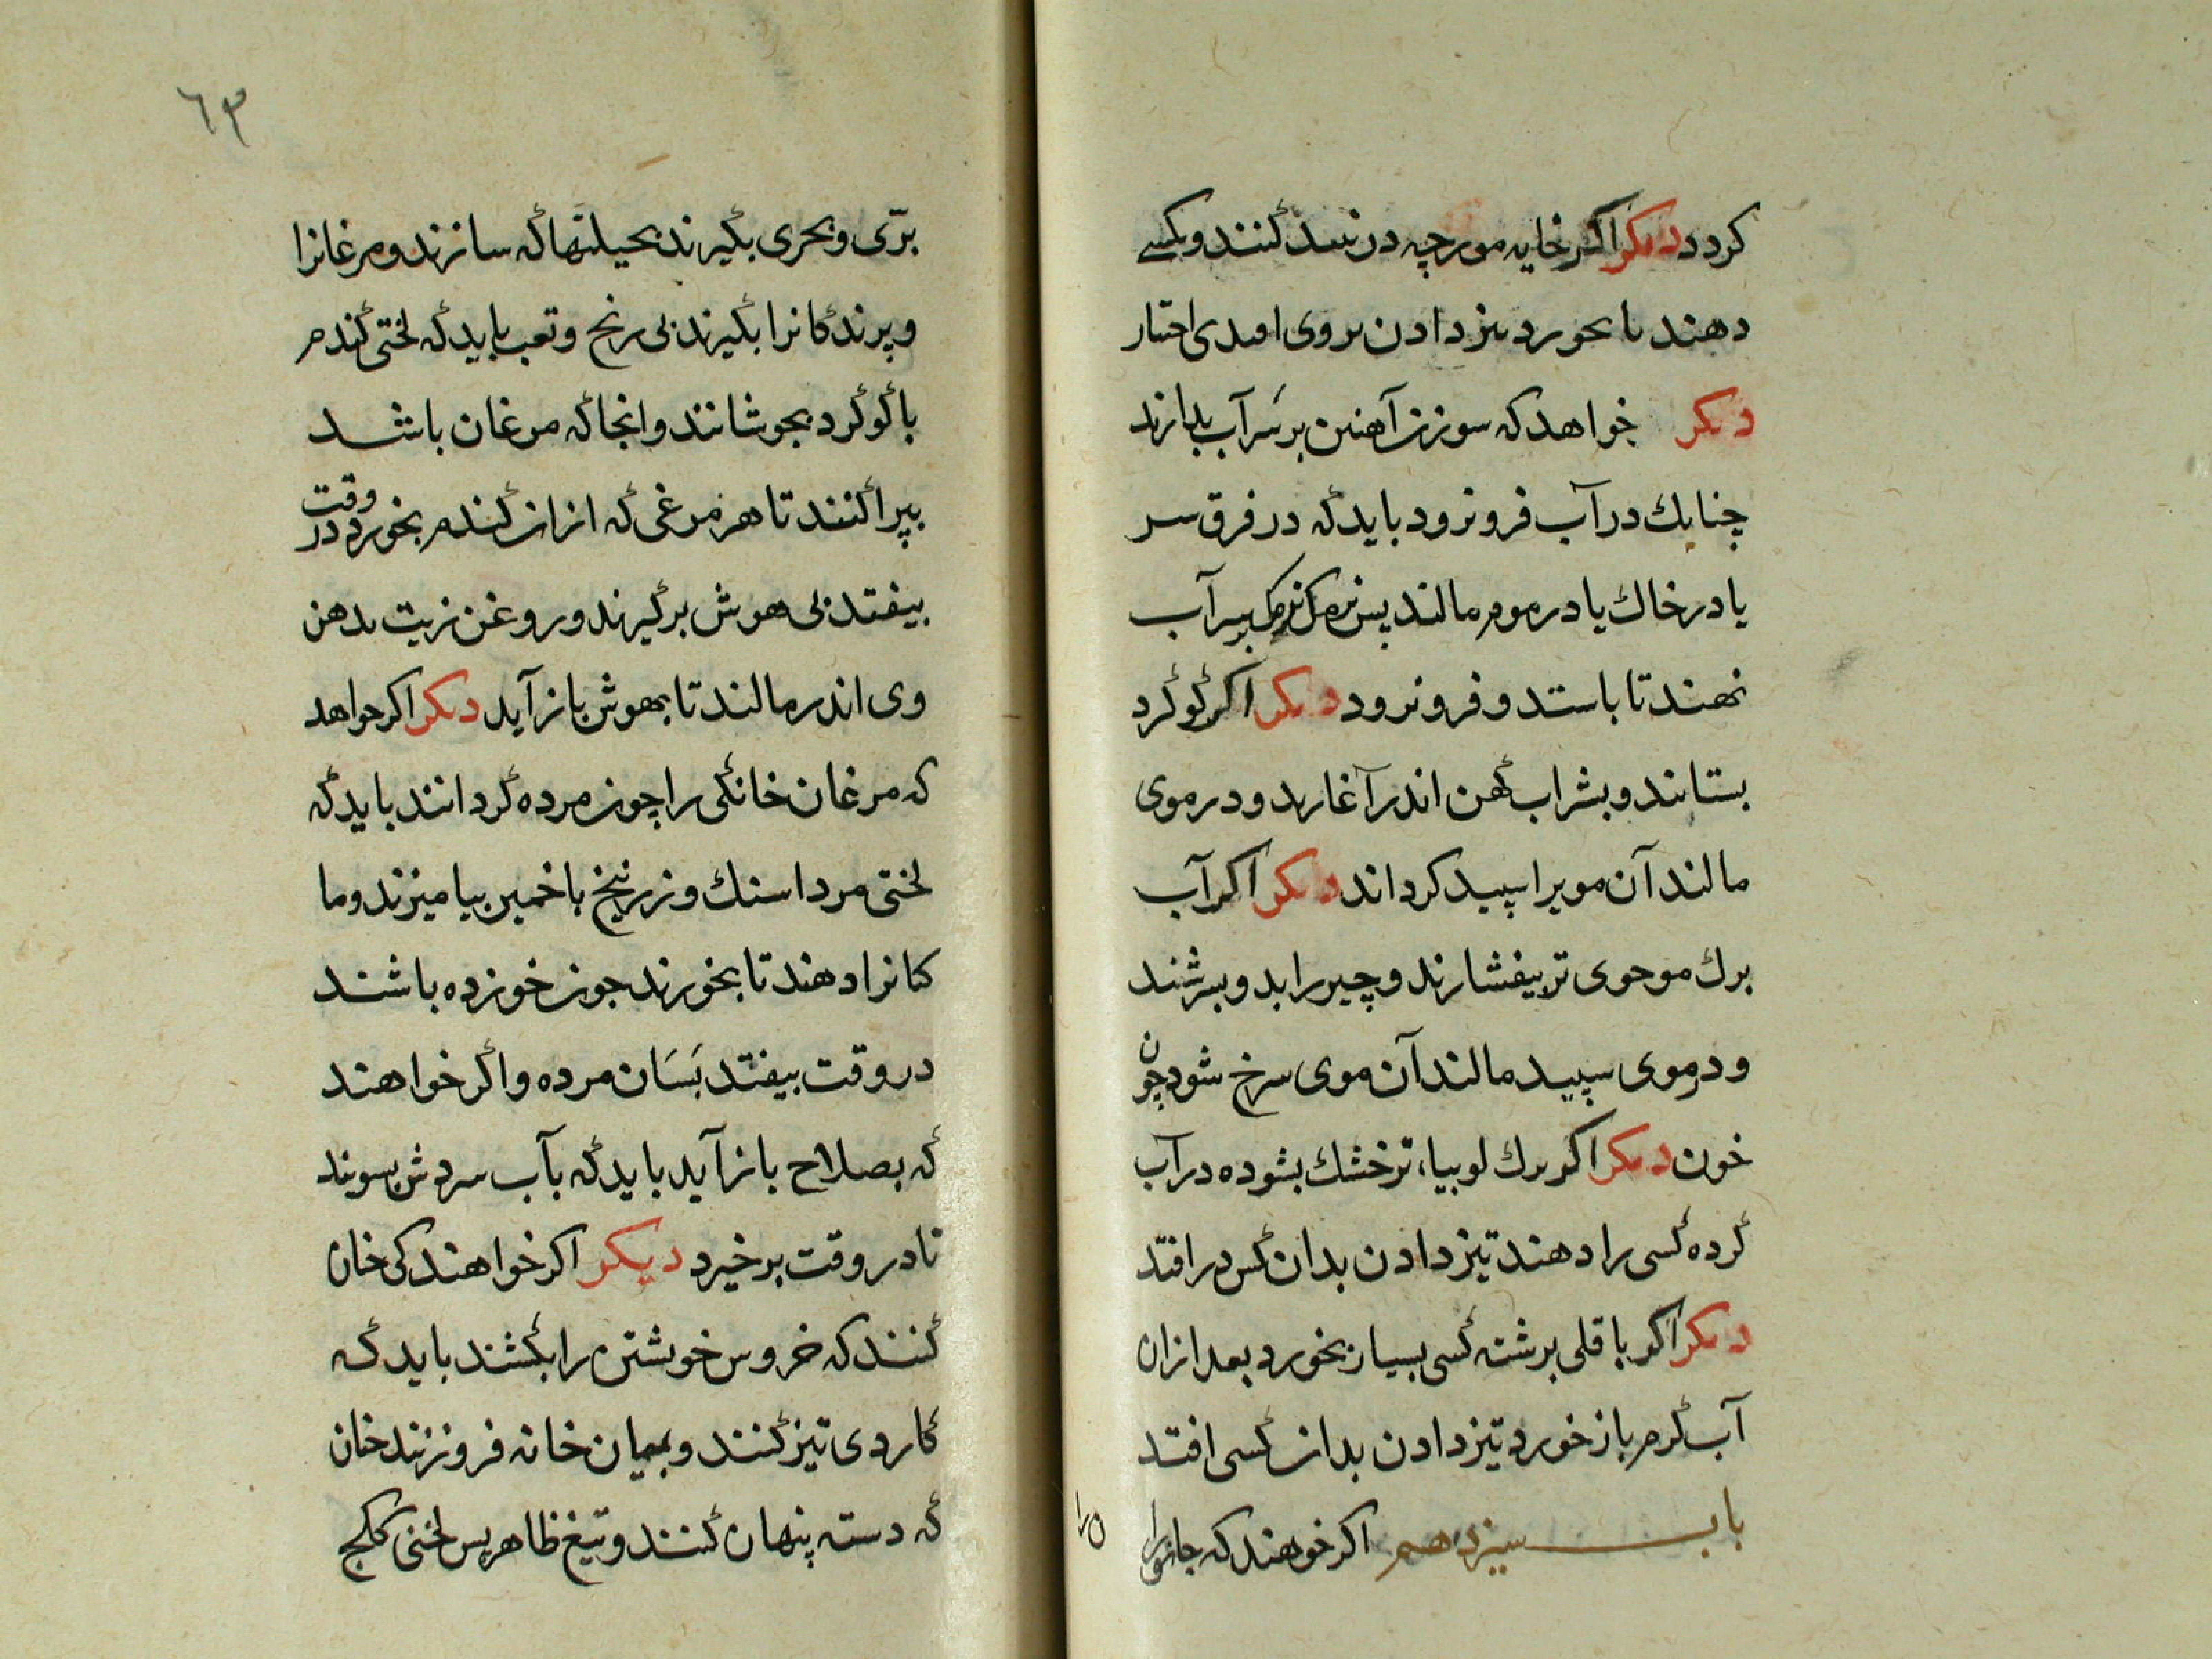 کردد دیکر اکر خایه مورچه در نبید کنند و بکسی
دهند تا بخورد تیز دادن بروی افتدی اختیار
دیکر خواهد که سوزن آهنین بر سر آب بدارند
چنانك در آب فرو نرود باید که در فرق سر
یا در خاك یا در موم مالند پس نرمك نرمك بسر آب
نهند تا باستد و فرو نرود دیکر اکر کوکرد
بستانند و بشراب کهن اندر آغارند و در موی
مالند آن مویرا سپید کرداند دیکر اکر آب
برك موحوی تر بیفشارند و چیر را بدو بسرشند
و در موی سپید مالند آن موی سرخ شود چون
خون دیکر اکر برك لوبیاء تر خشك بشوده در آب
کرده کسی را دهند تیز دادن بدان کس در افتد
دیکر اکر باقلی برشته کسی بسیار بخورد بعد ازان
آب کرم باز خورد تیز دادن بدان کسی افتد
باب سیزدهم اکر خوهند که جانورا
ن
برّی و بحری بکیرند بحیلتها که سازند و مرغانرا
و پرندکانرا بکیرند بی رنج و تعب باید که لختی کندم
با کوکرد بجوشانند وانجا که مرغان باشد
بپراکنند تا هر مرغی که از ان کندم بخورد در وقت
بیفتد بی هوش برکیرند و روغن زیت بدهن
وی اندر مالند تا بهوش باز آید دیکر اکر خواهد
که مرغان خانکی را چون مرده کردانند باید که
لختی مرداسنك و زرنیخ با خمیر بیامیزند و ما
کنانرا دهند تا بخورند جون خورده باشند
در وقت بیفتد بَسَان مرده و اکر خواهند
که بصلاح باز آید باید که بآب سردش بسویند
تا در وقت برخیزد دیکر اکر خواهند کی خان
کنند که خروس خویشتن را بکشند باید که
کاردی تیز کنند و بمیان خانه فرو زنند خان
که دسته پنهان کنند و تیغ ظاهر پس لختی کنجد
٦٣